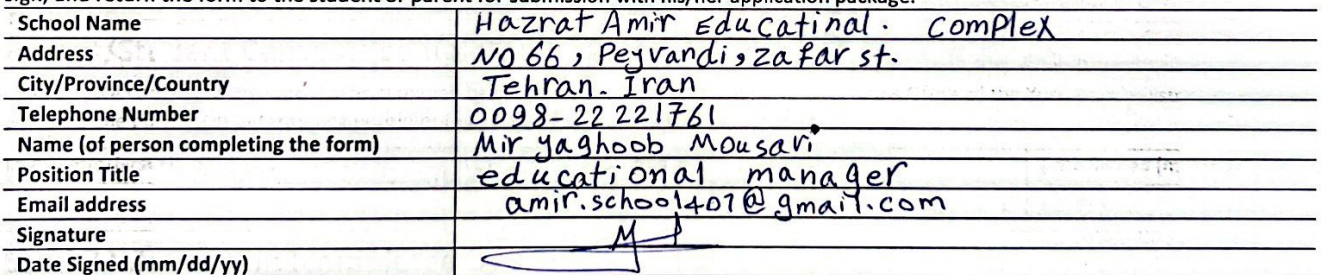 sign, and return the form to the student or parent for submission with his/her application package.
School Name Hazrat Amir Educatinal. Complex
Address NO 66, Peyvandi, zafar st.
City/Province/Country Tehran. Iran
Telephone Number 0098-22221761
Name (of person completing the form) Mir yaghoob Mousavi
Position Title educational manager
Email address amir.school401@gmail.com
Signature
Date Signed (mm/dd/yy)